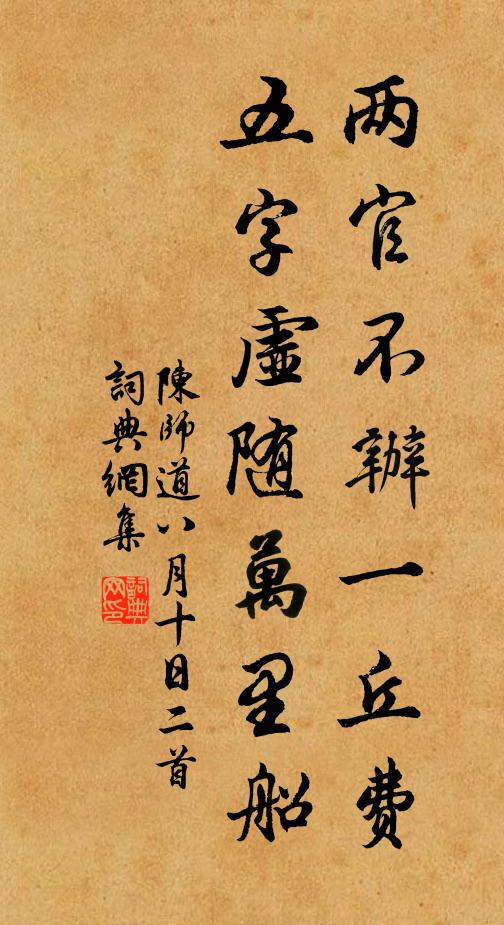 两官不辦一丘费
五字虚随萬里船
陳師道八月十日二首
詞典網集
詞典网印